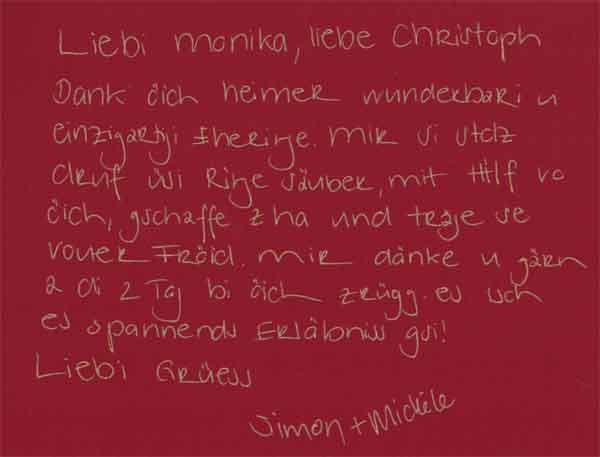 Liebi Monika, liebe Christoph
Dank öich heimer wunderbari u
einzigartigi Eheringe. Mir si stolz
druf üsi Ringe säuber, mit Hilf vo
öich, gschaffe z ha und träge se
vouer Fröid. Mir dänke u gärn
a di 2 Tag bi öich zrügg. es isch
es spannends Erläbniss gsi!
Liebi Grüess
Simon + Michèle